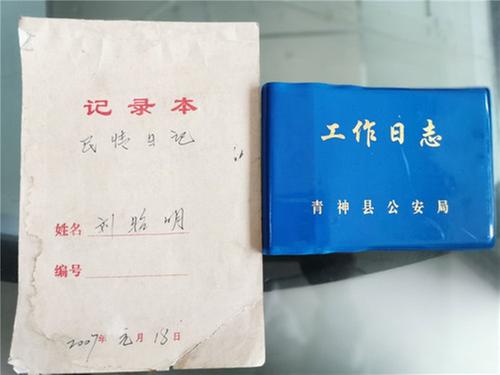 记录本
民情日记
姓名 刘贻明
编号
2007年 元月18日
工作日志
青神县公安局